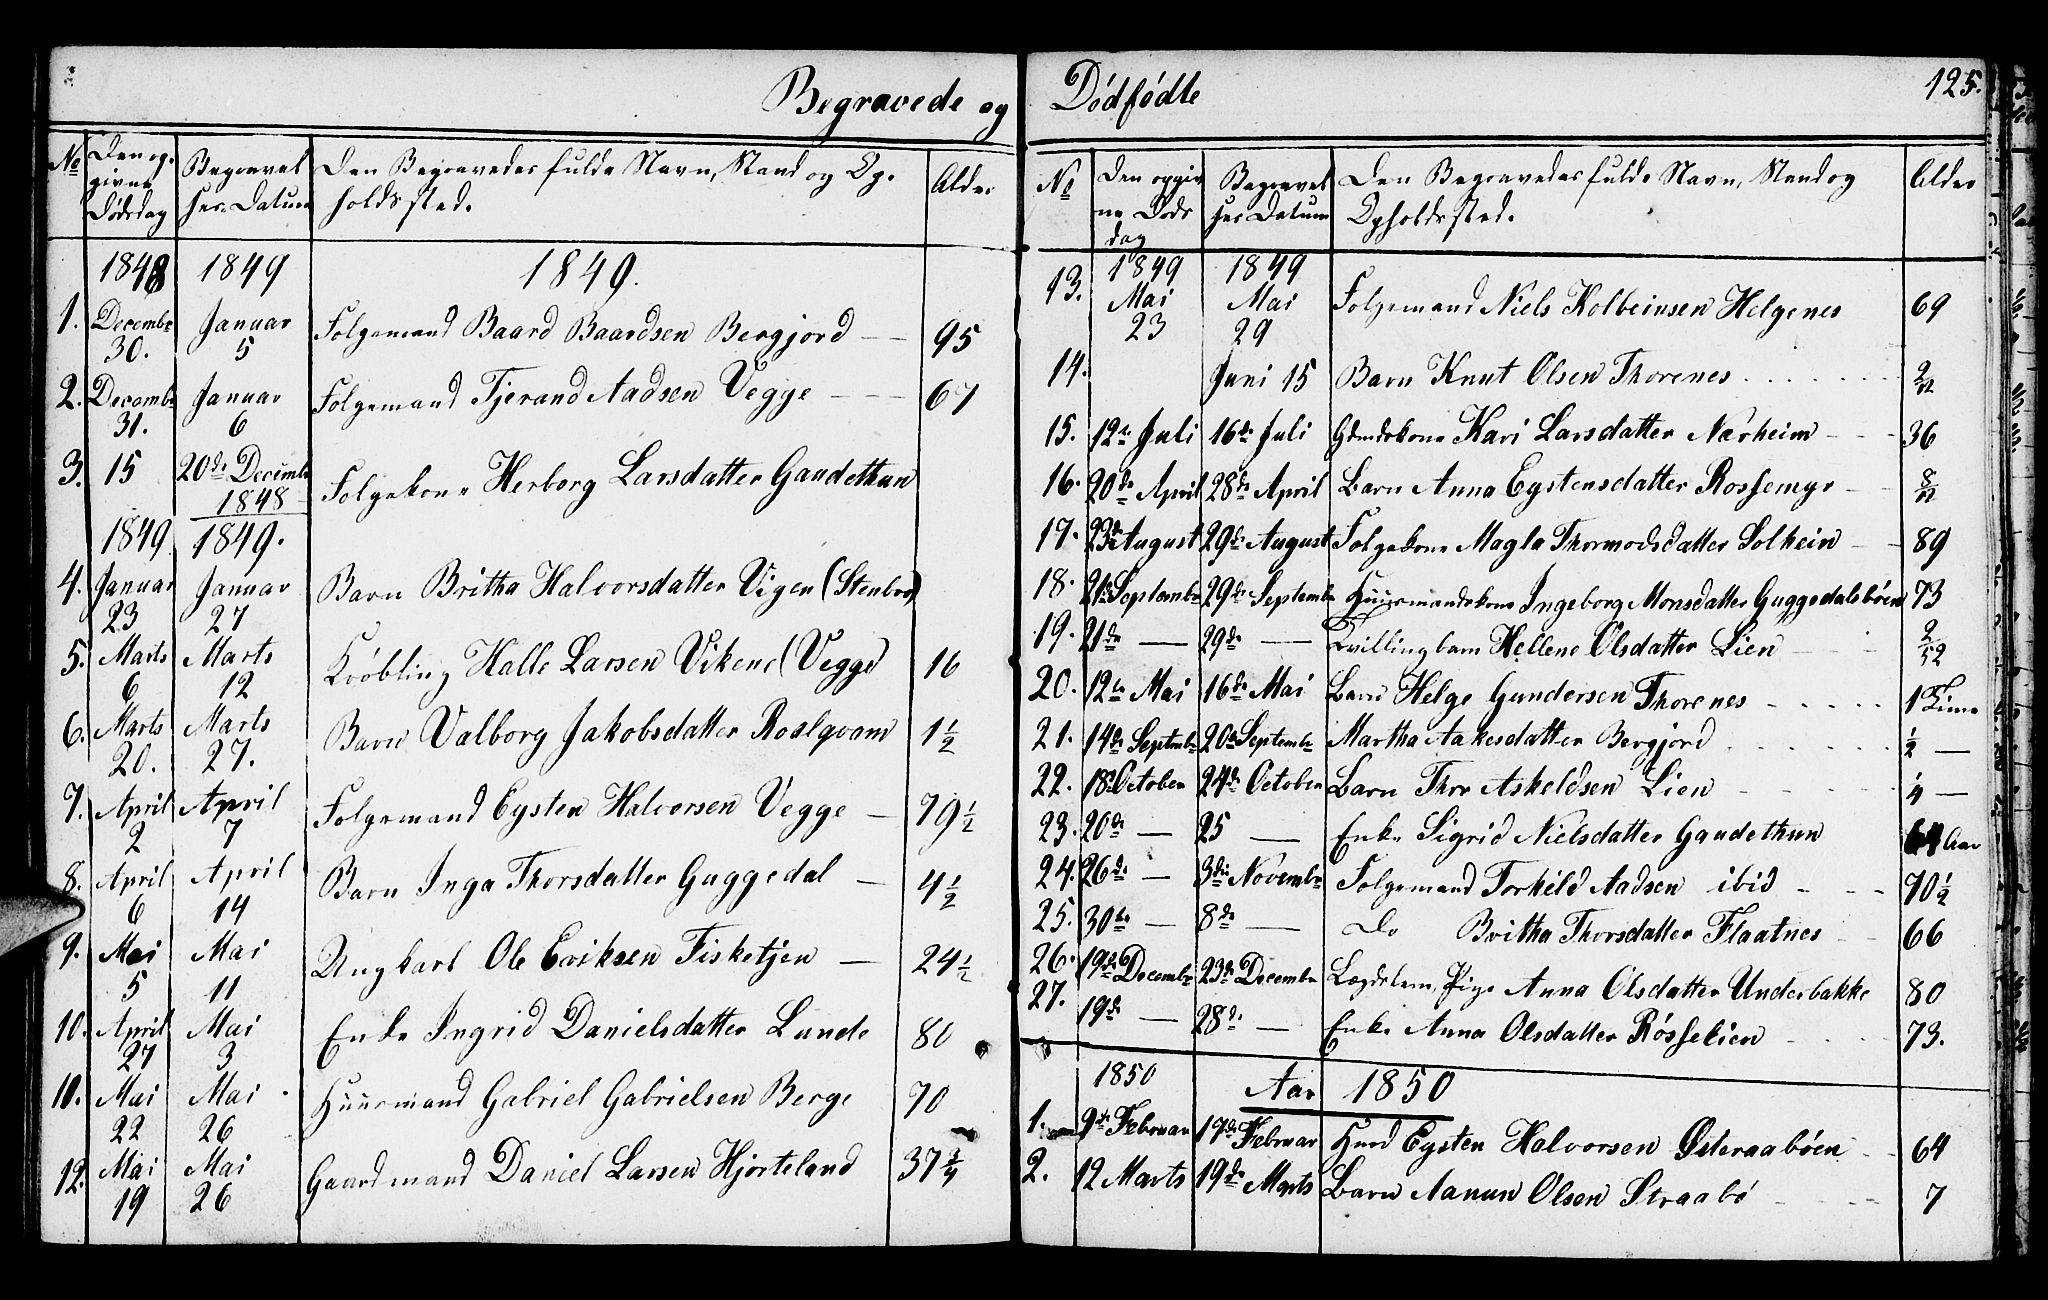 Begravede og Dødfødte 125.
No Den op- givne Dødsdag Begravel ses Datum Den Begravedes fulde Navn, Stand og Op- holdssted. Alder
1848 1849 1849.
1. Decembr 30. Januar 5 Folgemand Baard Baardsen Bergjord — — 95
2. Decembr 31. Januar 6 Folgemand Tjerand Aadsen Vegge — — — 67
3. 15 20de Decembr 1848 Folgekone Herborg Larsdatter Gaudethun
1849. 1849.
4. Januar 23 Januar 27 Barn Britha Halvorsdatter Vigen (Stenbro)
5. Marts 6 Marts 12 Krøbling Halle Larsen Vikene (Vegge) 16
6. Marts 20. Marts 27. Barn Valborg Jakobsdatter Roslqvam 1½
7. April 2 April 7 Folgemand Eysten Halvorsen Vegge — 79½
8. April 6 April 14 Barn Inga Thorsdatter Guggedal — 4½
9. Mai 5 Mai 11 Ungkarl Ole Eriksen Fisketjen — 24½
10. April 27 Mai 3 Enke Ingrid Danielsdatter Lunde 80
11. Mai 22 Mai 26 Huusmand Gabriel Gabrielsen Berge 70
12. Mai 19 Mai 26 Gaardmand Daniel Larsen Hjorteland 37¾
No Den opgiv ne Døds dag Begravel ses Datum Den Begravedes fulde Navn, Stand og Opholdssted. Alder
13. 1849 Mai 23 1849 Mai 29 Folgemand Niels Kolbeinsen Helgenes 69
14. Juni 15 Barn Knut Olsen Thorenes 2/12
15. 12te Juli 16de Juli Gmdskone Kari Larsdatter Nærheim — 36
16. 20de April 28de April Barn Anna Eystensdatter Rossemyr — 8/12
17. 23de August 29de August Folgekone Magla Thormodsdatter Solheim — 89
18. 21de Septembr 29de Septembr Huusmandskone Ingeborg Monsdatter Guggedalsbøen 73
19. 21de — 29de — Tvillingbarn Hellene Olsdatter Lien 2/52
20. 12te Mai 16de Mai Barn Helge Gundersen Thorenes 1 Time
21. 14de Septmbr 20de Septembr Martha Aakesdatter Bergjord ½ —
22. 18de October 24de October Barn Thor Askeldsen Lien 4 —
23. 20de — 25 — Enke Sigrid Nielsdatter Gaudethun 64 Aar
24. 26de — 3die Novembr Folgemand Torkild Aadsen ibid 70½
25. 30te — 8de — Do Britha Thorsdatter Flaatnes 66
26. 19de Decembr 23de Decembr Lægdslem, Pige Anna Olsdatter Underbakke 80
27. 19de — 28de — Enke Anna Olsdatter Røsselien 73.
1850 Aar 1850
1. 9de Februar 17de Februar Hmd Eysten Halvorsen Østeraabøen 64
2. 12 Marts 19de Marts Barn Aanun Olsen Straabø 7